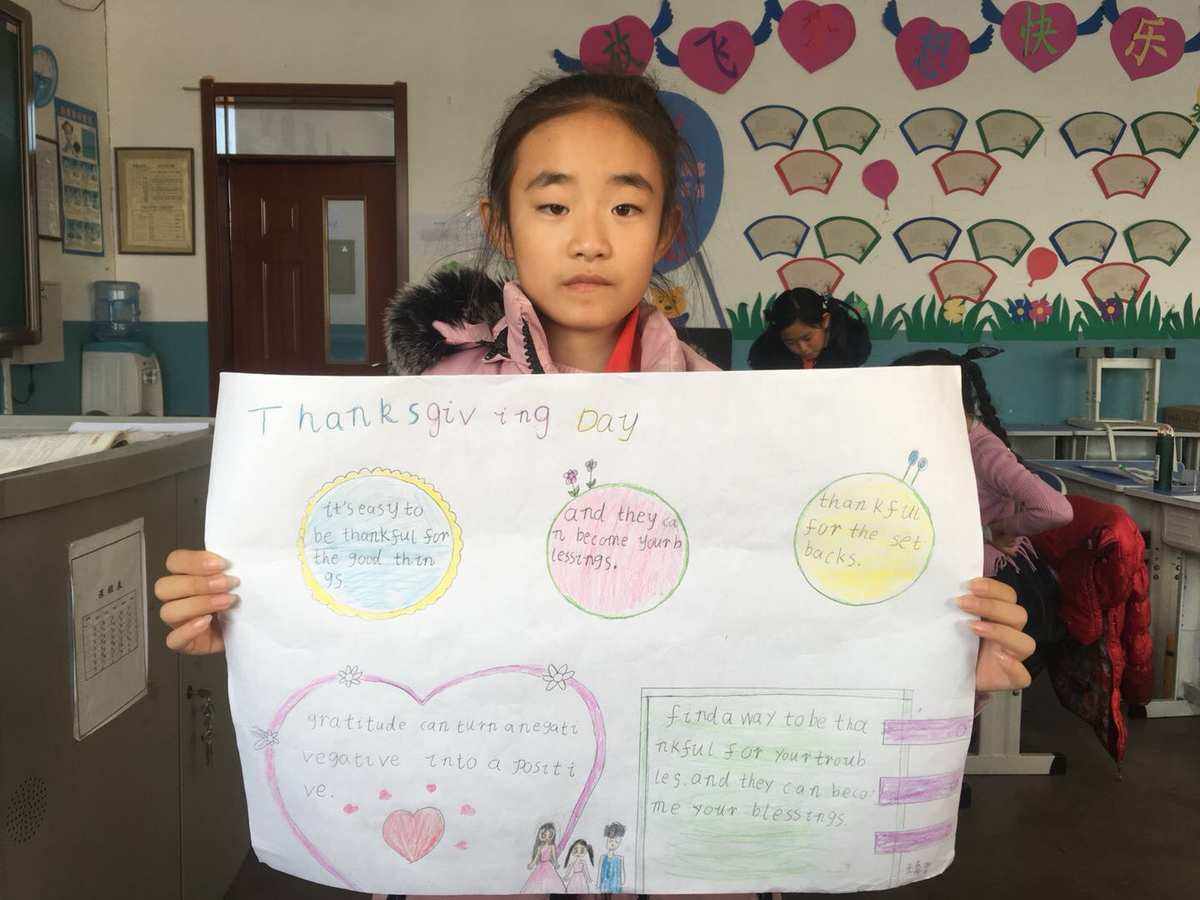 放飞 想快乐
Thanksgiving Day
it's easy to
be thankful for
the good thin
gs.
and they ca
n become your b
lessings.
thankful
for the set
backs.
gratitude can turn a negati
vegative into a positi
ve.
find a way to be tha
nkful for your troub
les. and they can beco
me your blessings.